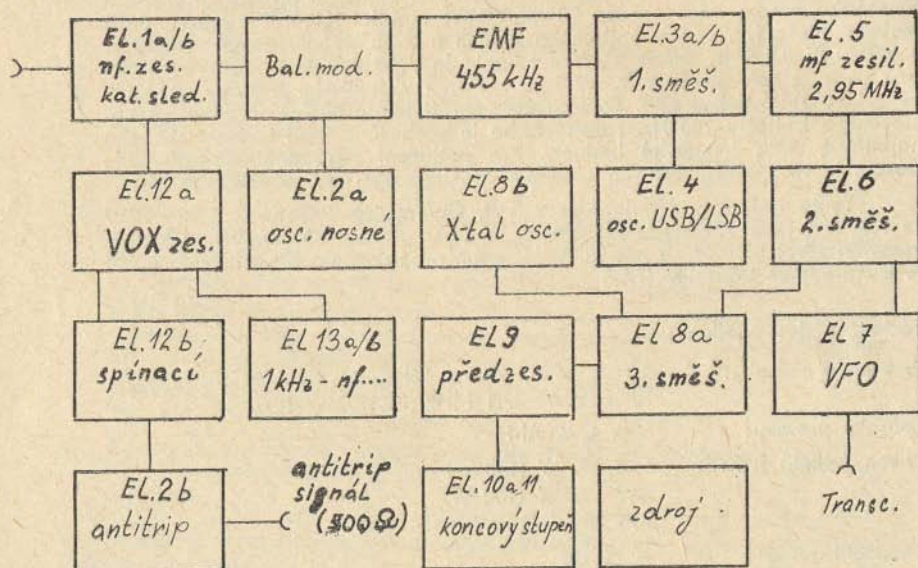 EL.1a/b
nf. zes.
kat. sled.
Bal. mod.
EMF
455 kHz
El.3a/b
1. směš.
El. 5
mf zesil.
2,95 MHz
El.12a
VOX zes.
El.2a
osc. nosné
El.8b
X-tal osc.
El. 4
osc. USB/LSB
El.6
2. směš.
El.12b
spínací
El 13a/b
1kHz - nf....
El9
předzes.
El 8a
3. směš.
El 7
VFO
El.2b
antitrip
antitrip
signál
(500Ω)
El.10a11
koncový stupeň
zdroj
Transc.